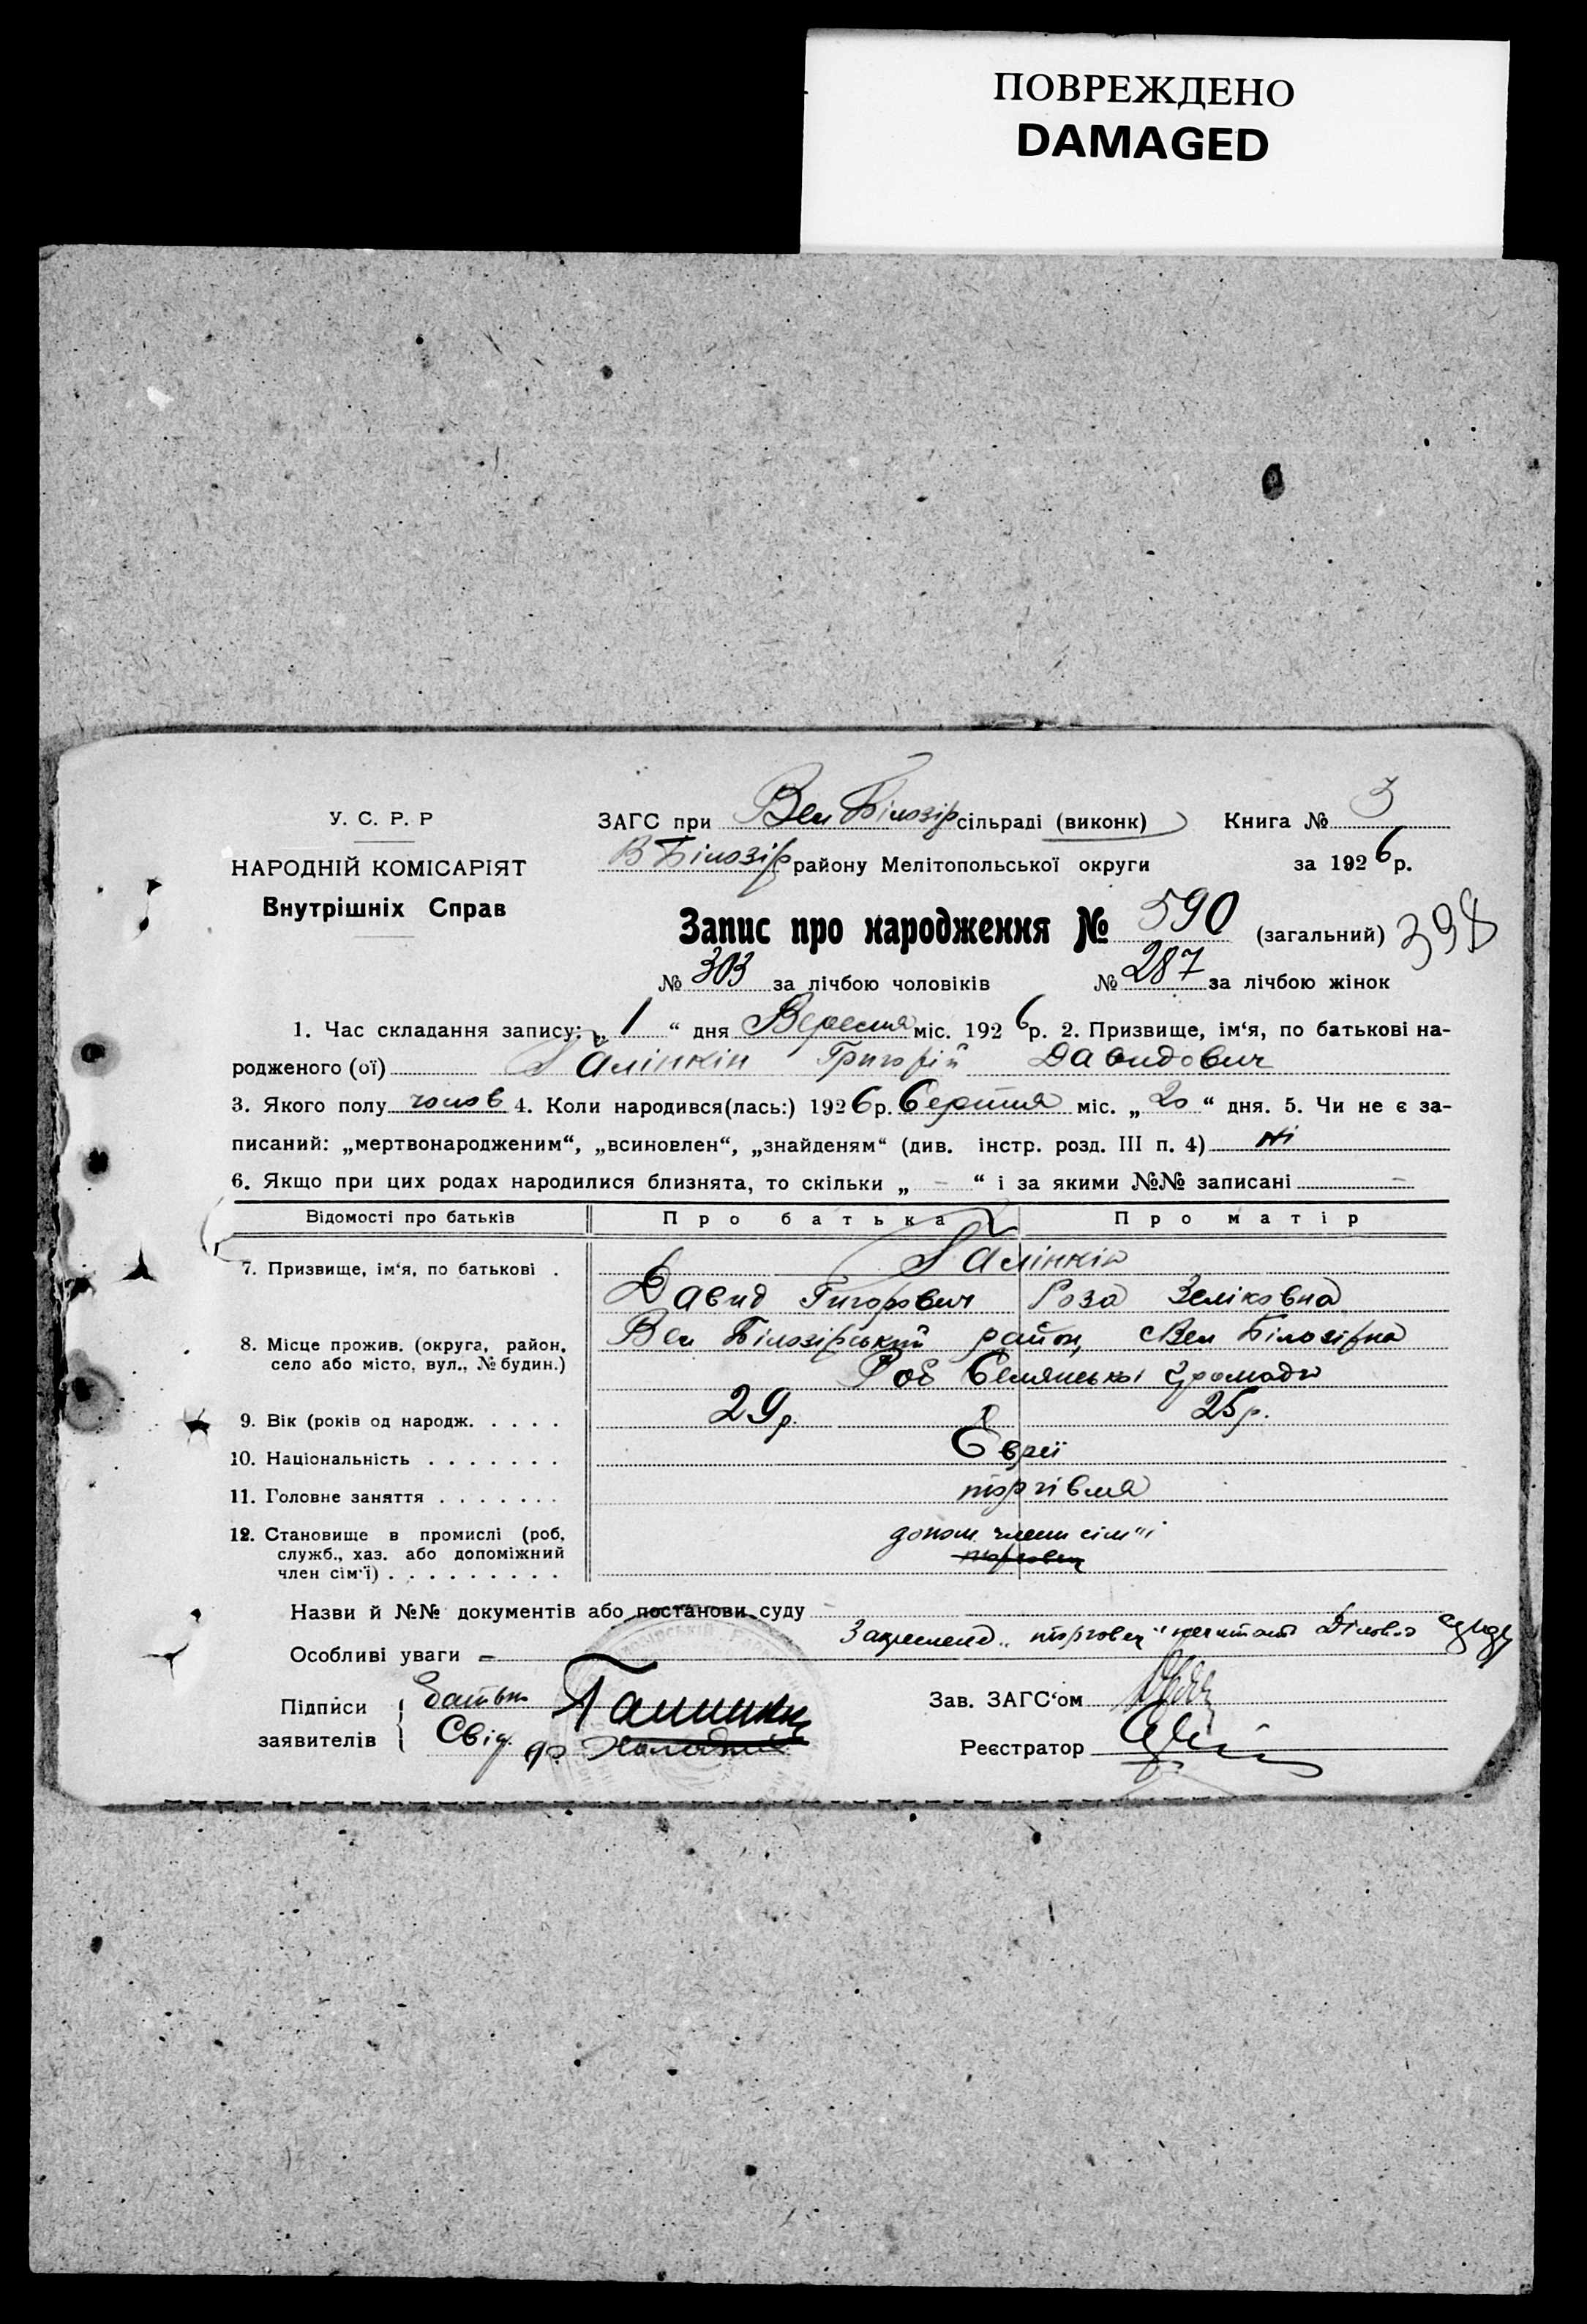 ПОВРЕЖДЕНО
DAMAGED
У. С. Р. Р
НАРОДНІЙ КОМІСАРІЯТ
Внутрішніх Справ
ЗАГС при Вел Білозір сільраді (виконк) Книга № 3
В Білозір району Мелітопольської округи за 1926 р.
Запис про народження № 590 (загальний) 398
№ 303 за лічбою чоловіків № 287 за лічбою жінок
1. Час складання запису: „ 1 “ дня Вересня міс. 1926 р. 2. Призвище, ім‘я, по батькові на-
родженого (ої) Галінкін Григорій Давидович
3. Якого полу чолов 4. Коли народився(лась:) 1926 р. Серпня міс. „ 20 “ дня. 5. Чи не є за-
писаний: „мертвонародженим“, „всиновлен“, „знайденям“ (див. інстр. розд. III п. 4) ні
6. Якщо при цих родах народилися близнята, то скільки „ - “ і за якими №№ записані -
Відомості про батьків Про батька Про матір
7. Призвище, ім‘я, по батькові . Галінкін
Давид Григорович Роза Зеліковна
8. Місце прожив. (округа, район, село або місто, вул., № будин.) Вел Білозірський район, с Вел Білозірка
громади
9. Вік (років од народж. . . . . 29 р. 25 р.
10. Національність . . . . . . . Євреї
11. Головне заняття . . . . . . . торгівля
12. Становище в промислі (роб, служб., хаз. або допоміжний член сім‘ї) . . . . . . . . . допом члени сім"ї
торговец
Назви й №№ документів або постанови суду
Закреслено „торговец"
Особливі уваги -
Підписи заявителів { Батько Галинкин
Свід.
Зав. ЗАГС‘ом
Реєстратор